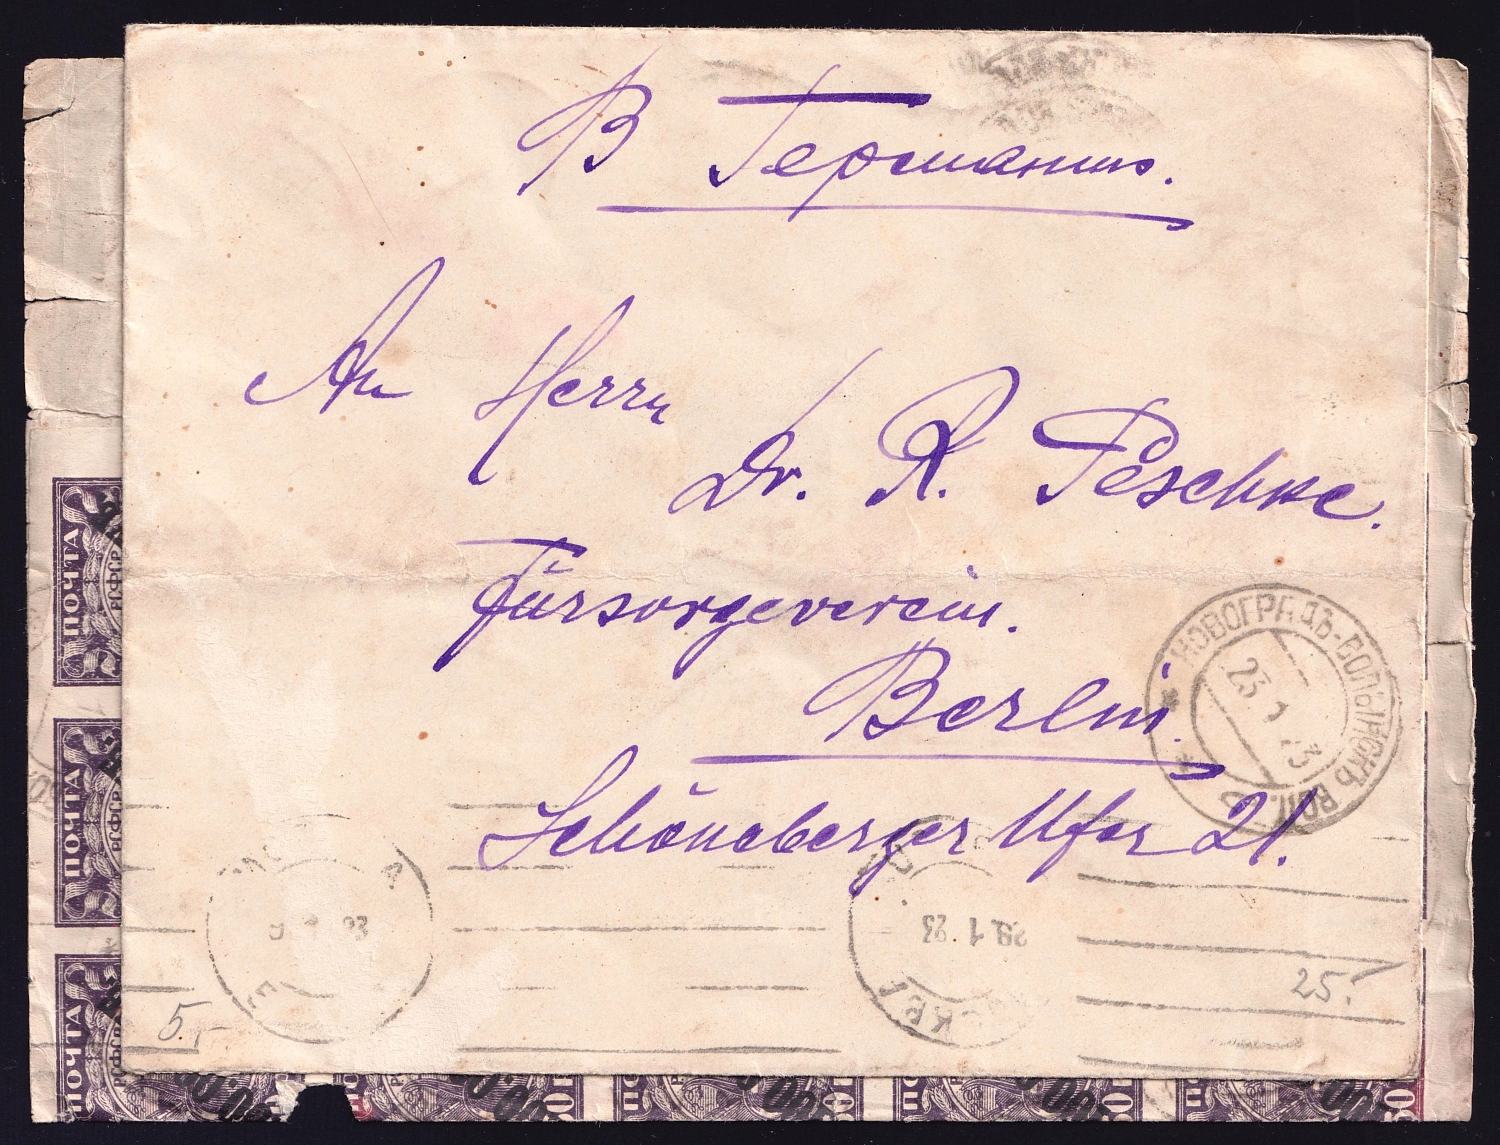 В Германию.
An Herrn
Dr. R. Peschke.
Fürsorgeverein.
Berlin.
Schöneberger Ufer 21.
НОВОГРАДЪ-ВОЛЫНСКЪ ВОЛ.
23 1 23
29.1 23
25.-
5.-
ПОЧТА
РСФСР
ПОЧТА
РСФСР
ПОЧТА
РСФСР